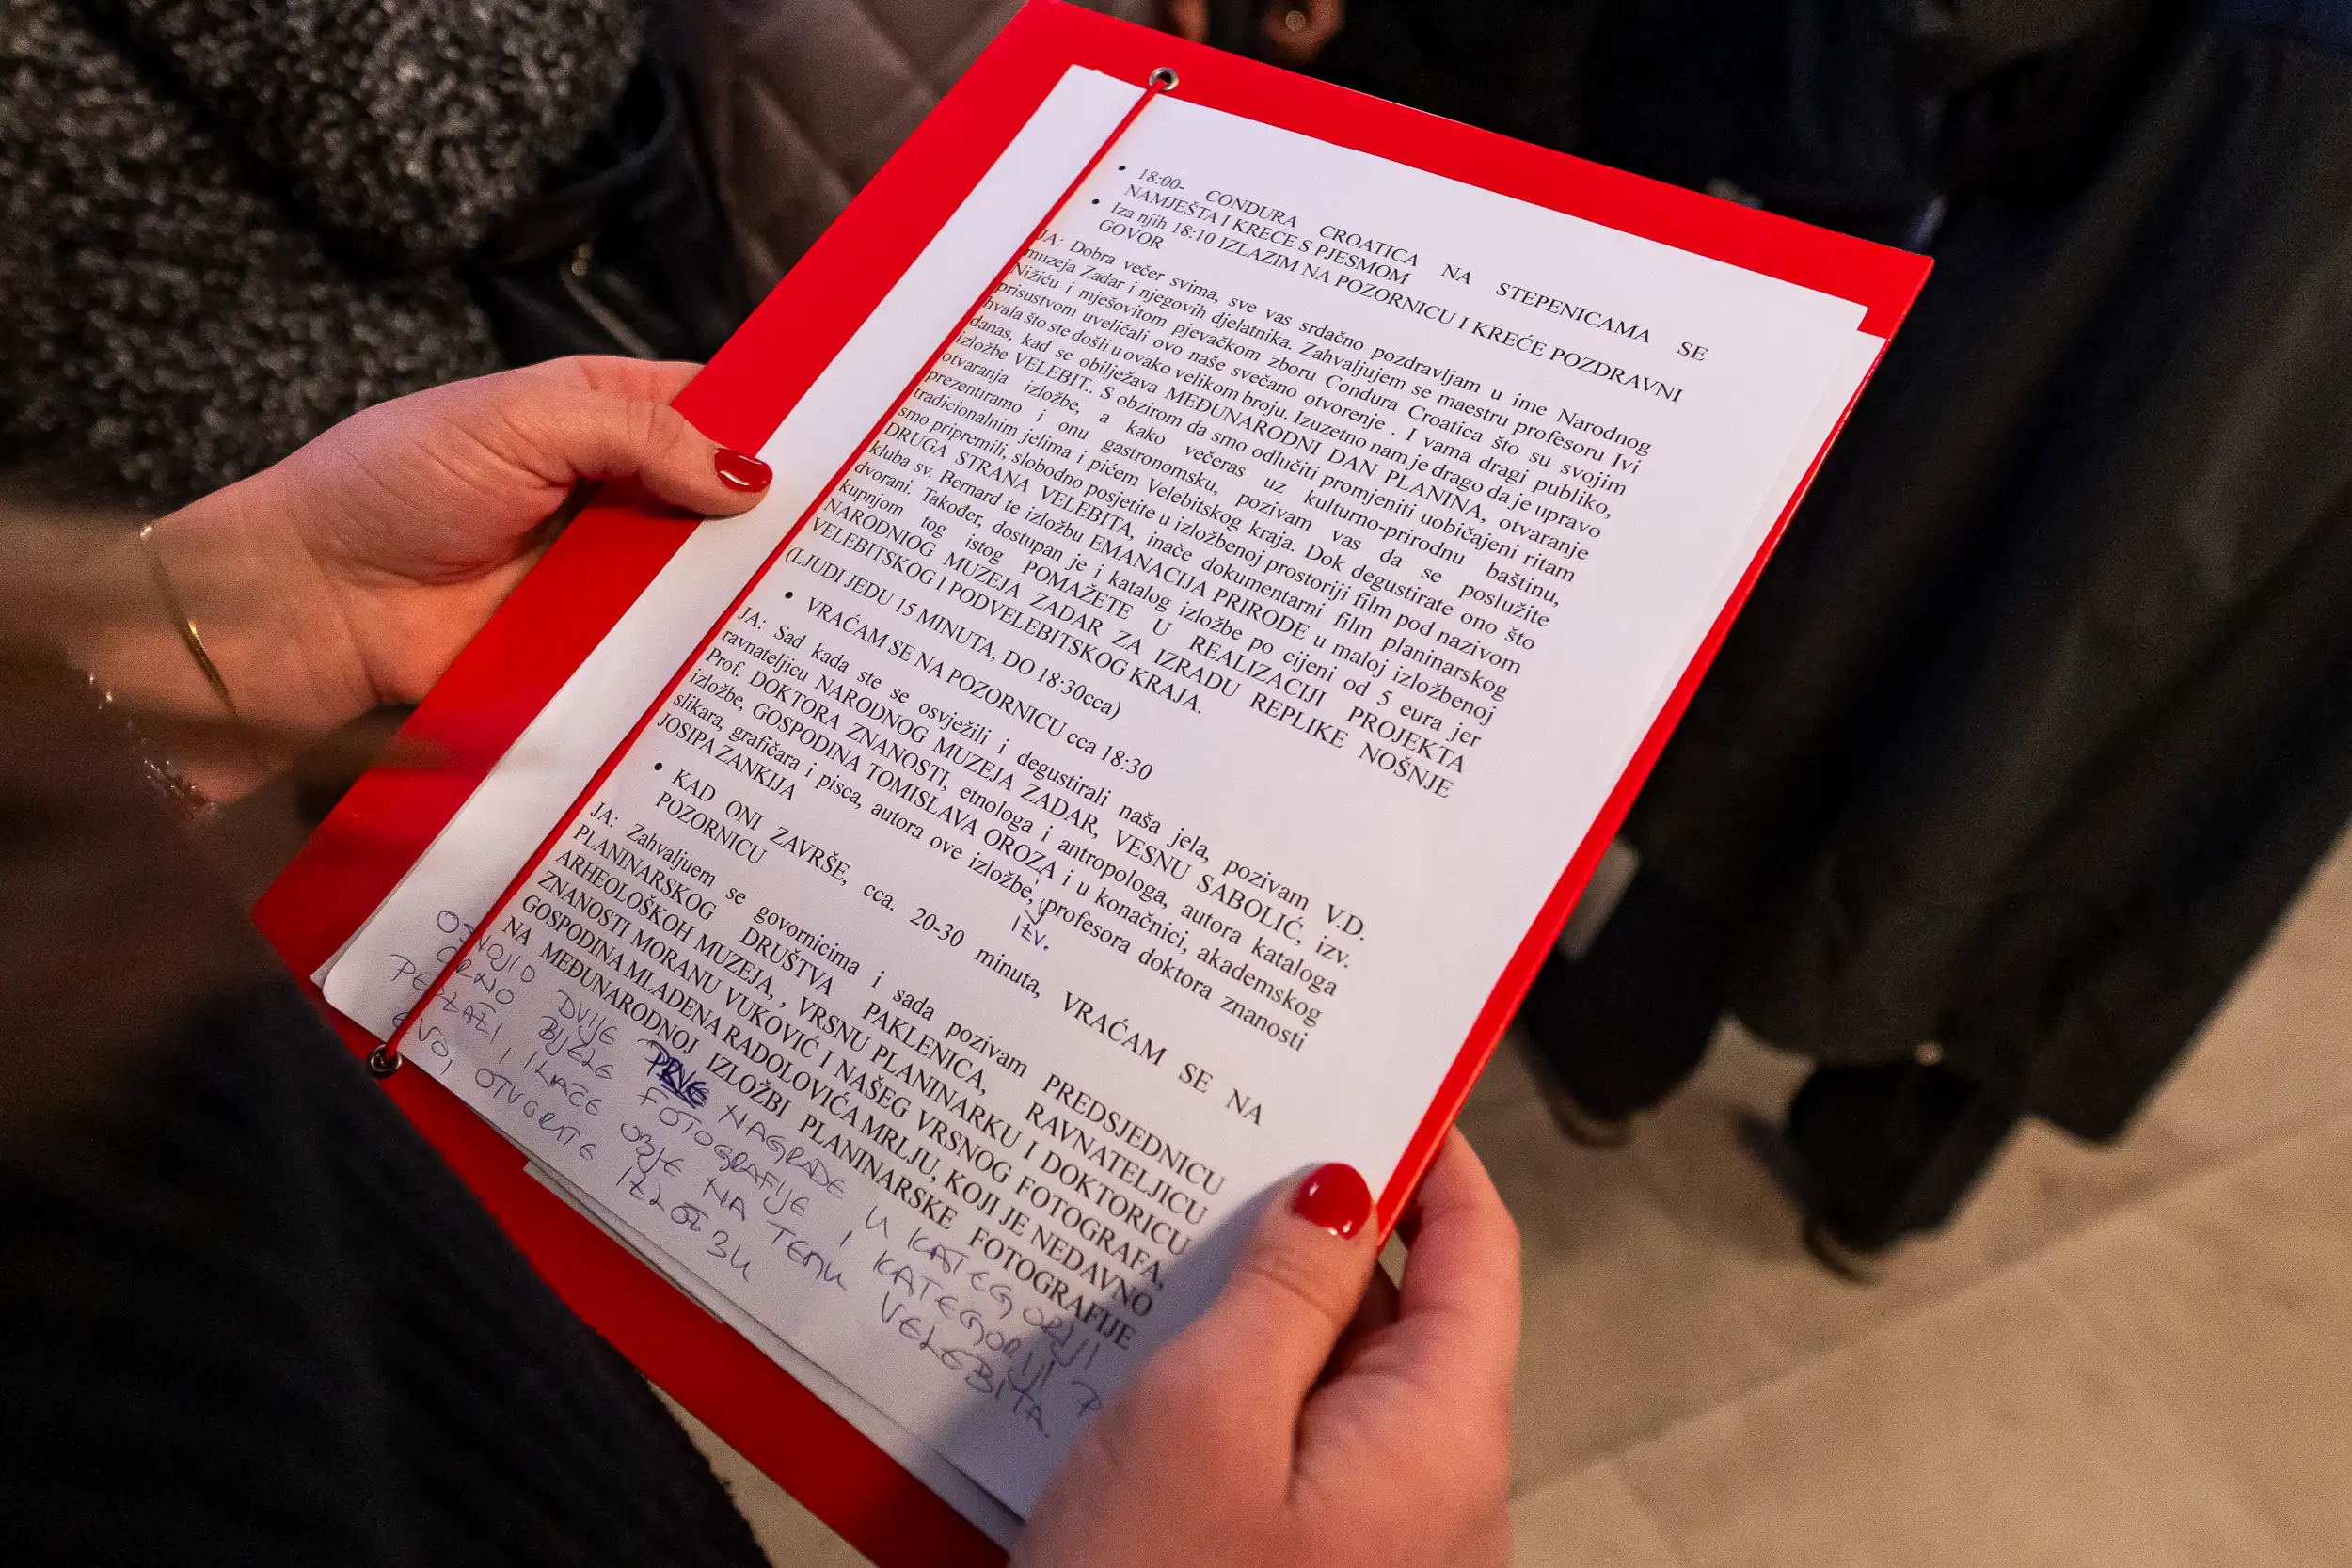 • 18:00- CONDURA CROATICA NA STEPENICAMA SE
NAMJEŠTA I KREĆE S PJESMOM
• Iza njih 18:10 IZLAZIM NA POZORNICU I KREĆE POZDRAVNI
GOVOR
JA: Dobra večer svima, sve vas srdačno pozdravljam u ime Narodnog
muzeja Zadar i njegovih djelatnika. Zahvaljujem se maestru profesoru Ivi
Nižiću i mješovitom pjevačkom zboru Condura Croatica što su svojim
prisustvom uveličali ovo naše svečano otvorenje . I vama dragi publiko,
hvala što ste došli u ovako velikom broju. Izuzetno nam je drago da je upravo
danas, kad se obilježava MEĐUNARODNI DAN PLANINA, otvaranje
izložbe VELEBIT.. S obzirom da smo odlučiti promjeniti uobičajeni ritam
otvaranja izložbe, a kako večeras uz kulturno-prirodnu baštinu,
prezentiramo i onu gastronomsku, pozivam vas da se poslužite
tradicionalnim jelima i pićem Velebitskog kraja. Dok degustirate ono što
smo pripremili, slobodno posjetite u izložbenoj prostoriji film pod nazivom
DRUGA STRANA VELEBITA, inače dokumentarni film planinarskog
kluba sv. Bernard te izložbu EMANACIJA PRIRODE u maloj izložbenoj
dvorani. Također, dostupan je i katalog izložbe po cijeni od 5 eura jer
kupnjom tog istog POMAŽETE U REALIZACIJI PROJEKTA
NARODNIOG MUZEJA ZADAR ZA IZRADU REPLIKE NOŠNJE
VELEBITSKOG I PODVELEBITSKOG KRAJA.
(LJUDI JEDU 15 MINUTA, DO 18:30cca)
• VRAĆAM SE NA POZORNICU cca 18:30
JA: Sad kada ste se osvježili i degustirali naša jela, pozivam V.D.
ravnateljicu NARODNOG MUZEJA ZADAR, VESNU SABOLIĆ, izv.
Prof. DOKTORA ZNANOSTI, etnologa i antropologa, autora kataloga
izložbe, GOSPODINA TOMISLAVA OROZA i u konačnici, akademskog
slikara, grafičara i pisca, autora ove izložbe, profesora doktora znanosti
IZV.
JOSIPA ZANKIJA
• KAD ONI ZAVRŠE, cca. 20-30 minuta, VRAĆAM SE NA
POZORNICU
JA: Zahvaljuem se govornicima i sada pozivam PREDSJEDNICU
PLANINARSKOG DRUŠTVA PAKLENICA, RAVNATELJICU
ARHEOLOŠKOH MUZEJA, , VRSNU PLANINARKU I DOKTORICU
ZNANOSTI MORANU VUKOVIĆ I NAŠEG VRSNOG FOTOGRAFA,
GOSPODINA MLADENA RADOLOVIĆA MRLJU, KOJI JE NEDAVNO
NA MEĐUNARODNOJ IZLOŽBI PLANINARSKE FOTOGRAFIJE
OSVOJIO DVIJE NAGRADE U KATEGORIJI
CRNO BIJELE FOTOGRAFIJE I KATEGORIJI
PEJZAŽI, INAČE OBJE NA TEMU VELEBITA.
EVO, OTVORATE IZLOŽBU